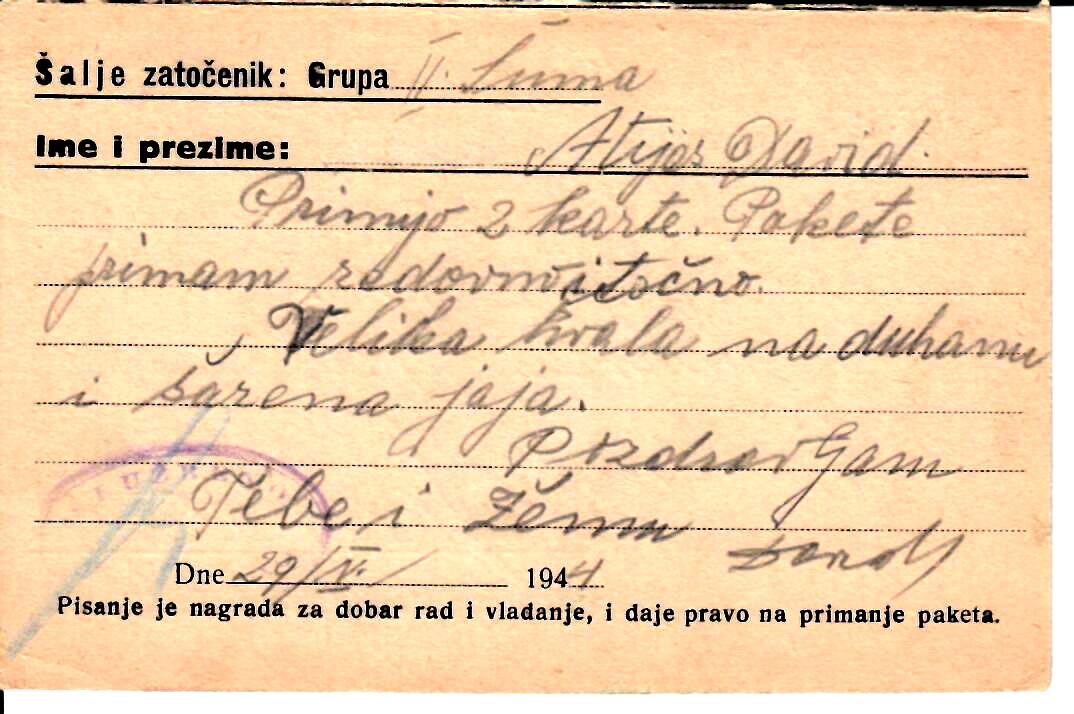 Šalje zatočenik: Grupa II. Šuma
Ime i prezime: Atijas David
Primijo 2 karte. Pakete
primam redovno i točno.
Velika hvala na duhanu
i šarena jaja.
Pozdravljam
Tebe i Ženu David
Dne 29/IV. 1944
Pisanje je nagrada za dobar rad i vladanje, i daje pravo na primanje paketa.